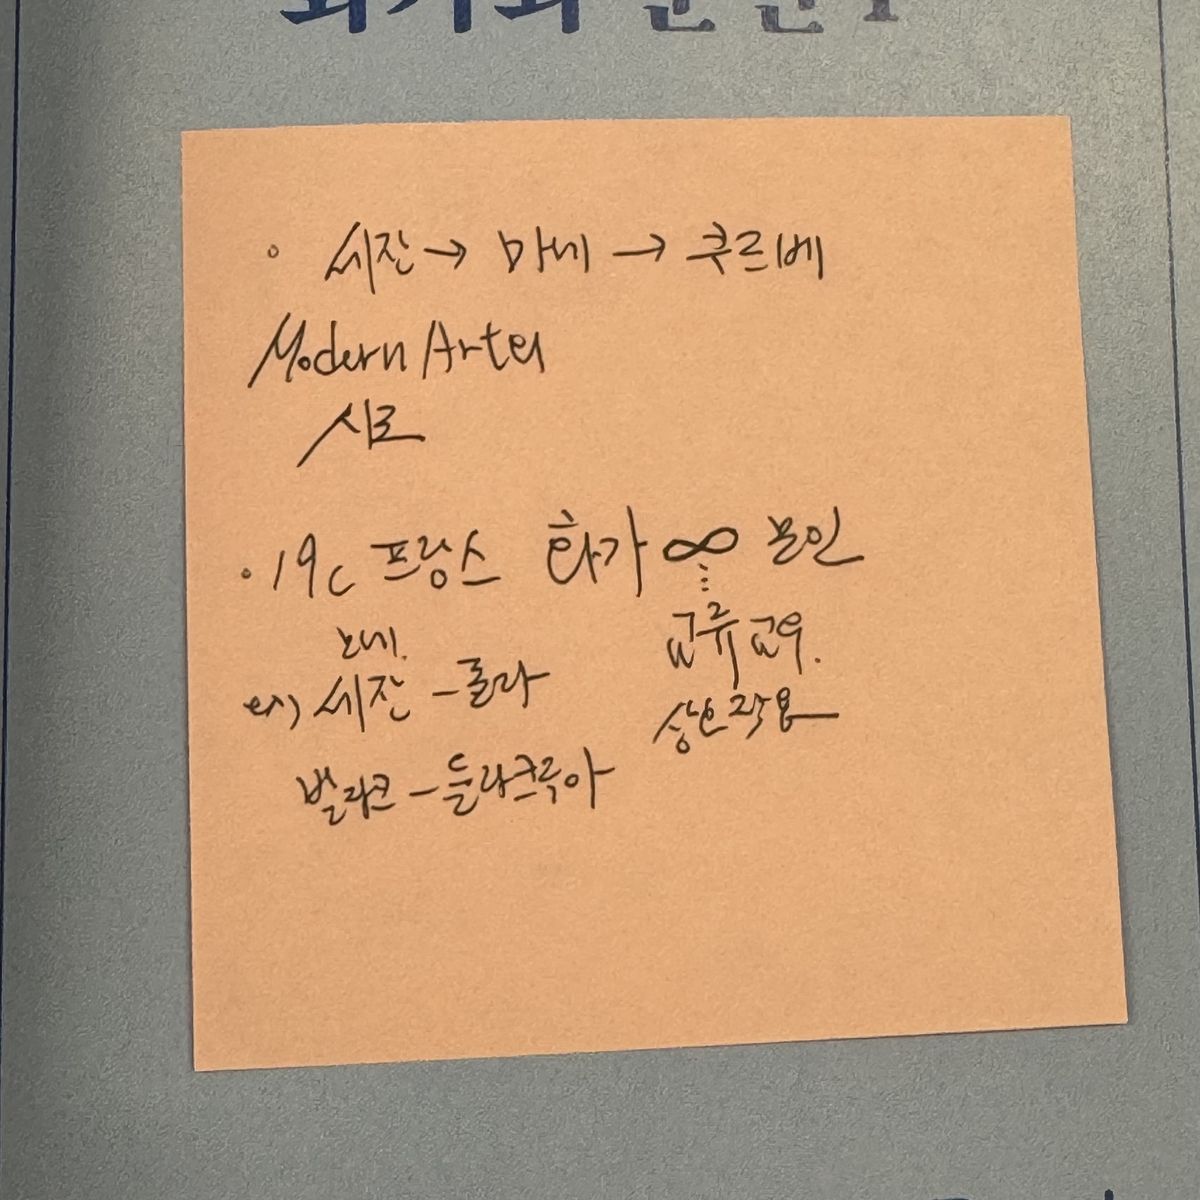 화가와 문인
• 세잔 → 마네 → 쿠르베
Modern Art의
시로
• 19c 프랑스 화가 ∞ 문인
교류 교우.
마네.
ex) 세잔 - 졸라
상호작용
발라크 - 들라크루아